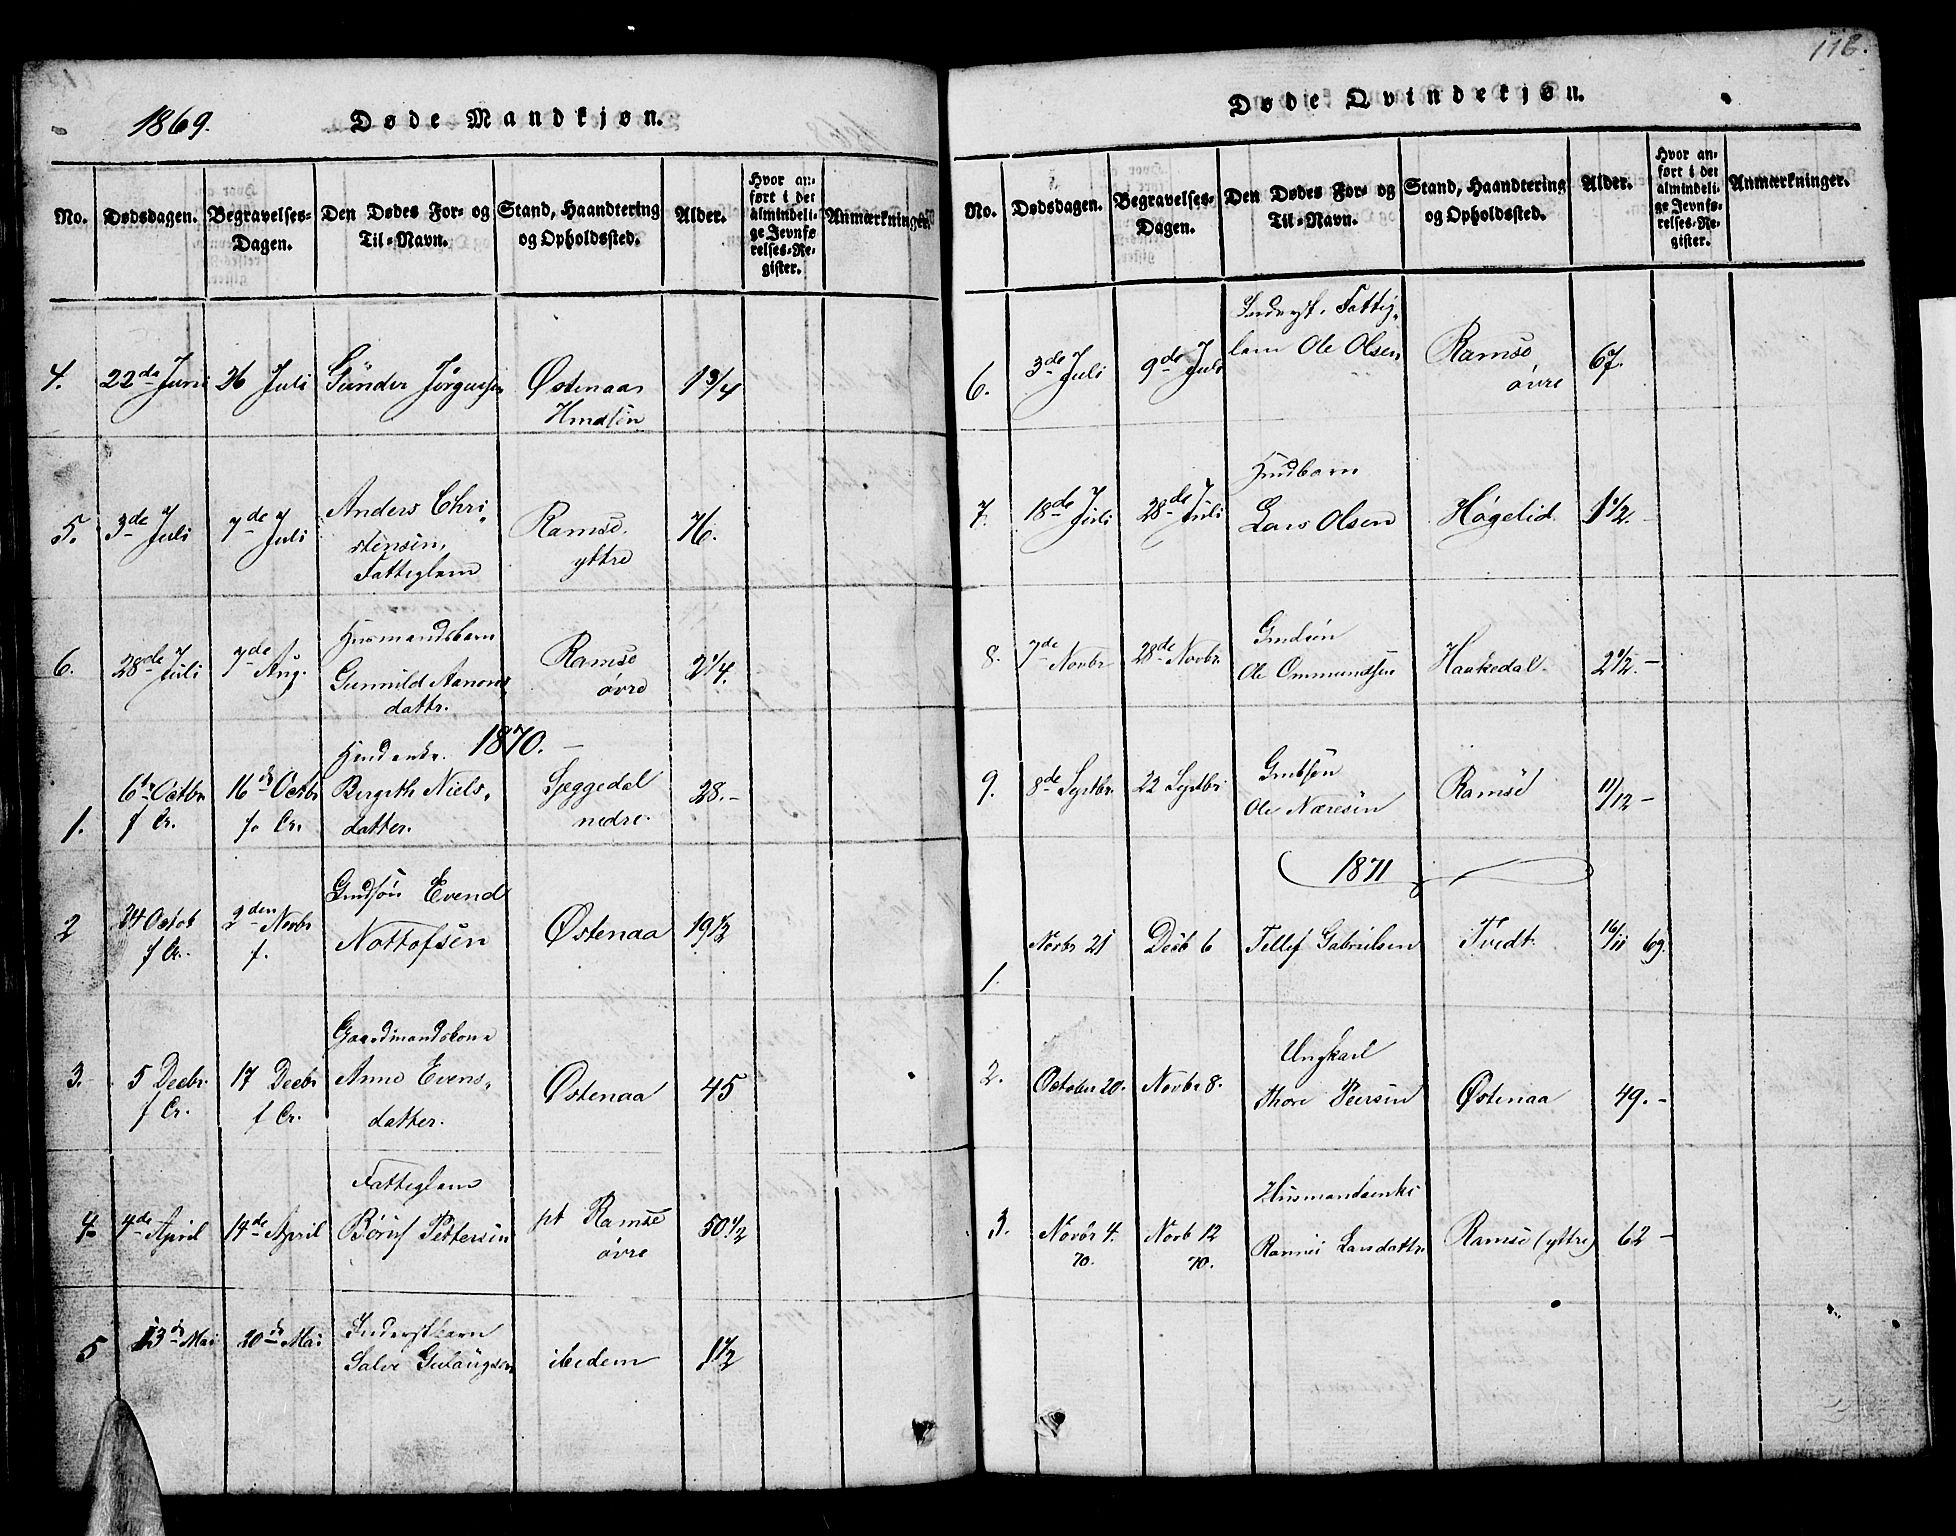 116.
1869.
Døde Mandkjøn.
No.
Dødsdagen.
Begravelses-
Dagen.
Den Dødes For- og
Til-Navn.
Stand, Haandtering
og Opholdssted.
Alder.
Hvor an-
ført i det
almindeli-
ge Jevnfø
relses-Re-
gister.
Anmærkninger.
4. 22de Juni 26 Juli Gunder Jørgensen Østenaa 1 3/4
5. 3de Juli 7de Juli Anders Chri-
stensen,
Fattiglem
Ramse
yttre
76.
6. 28de Juli 7de Aug.
Husmandsbarn
Gunnild Aanons-
dattr.
Ramse
øvre
2 1/4.
1870.
1. 6te Octbr
f Ar.
16de Octbr
f. Ar.
Bergith Niels-
datter.
Jeggedal
nedre.
28.-
2 24 Octob
f Ar.
2den Novbr
f.
Grudsøn Evend
Nottolfsen
Østenaa
19 1/2
3. 5 Decbr.
f Ar.
17 Decbr
f Ar.
Gaardmandskone
Anne Evens-
datter.
Østenaa
45
4. 4de April 14de April
Fattiglem
Børuf Pettersen
pt Ramse
øvre
50 1/2
5 13de Mai 20de Mai
Inderstbarn
Salve Gulaugsen
ibedem
1 1/2
Døde Qvindekjøn.
No.
Dødsdagen.
Begravelses-
Dagen.
Den Dødes For- og
Til-Navn.
Stand, Haandtering
og Opholdssted.
Alder.
Hvor an-
ført i det
almindeli-
ge Jevnfø-
relses-Re-
gister.
Anmærkninger.
6. 3de Juli 9de Juli
Inderst. Fattig-
lem Ole Olsen
Ramse
øvre
67.
7. 18de Juli 28de Juli
Lars Olsen
Høgelid
1 1/2.-
8. 7de Novbr 28de Novbr.
Grudsøn
Ole Ommundsen
Haakedal.
2 1/2.-
9. 8de Septbr. 22 Septbr
Grudsøn
Ole Næresen
Ramse
11/12-
1871
1. Novbr 21 Decb 6 Tellef Gabrielsen Tvedt 16/11 69.
2. October 20. Novbr 8.
Ungkarl
Thore Peersen
Østenaa
49.-
3. Novbr 4.
70.
Novb 12
70.
Husmandsenke
Rannei Larsdattr.
Ramse (yttre)
62-